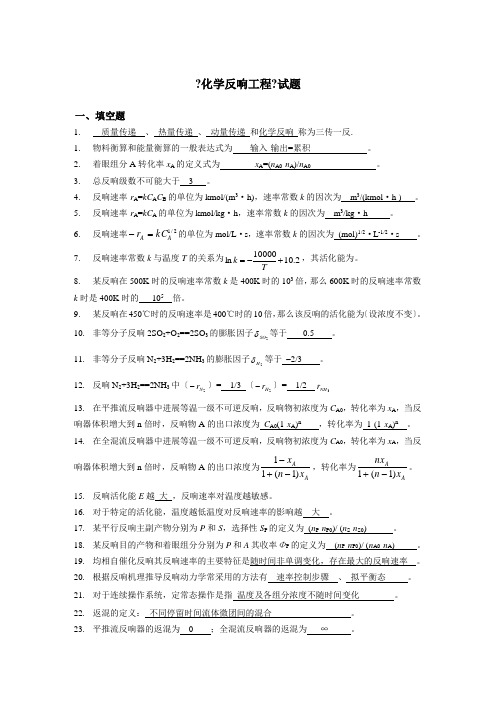 ?化学反响工程?试题
一、填空题
1. 质量传递 、 热量传递 、 动量传递 和化学反响 称为三传一反.
1. 物料衡算和能量衡算的一般表达式为 输入-输出=累积 。
2. 着眼组分 A 转化率 xA 的定义式为 xA=(nA0-nA)/nA0 。
3. 总反响级数不可能大于 3 。
4. 反响速率-rA=kCACB 的单位为 kmol/(m³·h)，速率常数 k 的因次为 m³/(kmol·h ) 。
5. 反响速率-rA=kCA 的单位为 kmol/kg·h，速率常数 k 的因次为 m³/kg·h 。
6. 反响速率 −rA = kCA^1/2 的单位为 mol/L·s，速率常数 k 的因次为 (mol)^1/2·L^-1/2·s 。
7. 反响速率常数 k 与温度 T 的关系为 ln k = −10000/T + 10.2，其活化能为。
8. 某反响在 500K 时的反响速率常数 k 是 400K 时的 10³ 倍，那么 600K 时的反响速率常数
k 时是 400K 时的 10⁵ 倍。
9. 某反响在 450℃时的反响速率是 400℃时的 10 倍，那么该反响的活化能为〔设浓度不变〕。
10. 非等分子反响 2SO2+O2==2SO3 的膨胀因子 δSO2 等于 -0.5 。
11. 非等分子反响 N2+3H2==2NH3 的膨胀因子 δH2 等于 –2/3 。
12. 反响 N2+3H2==2NH3 中〔−rN2〕= 1/3 〔−rH2〕= 1/2 rNH3
13. 在平推流反响器中进展等温一级不可逆反响，反响物初浓度为 CA0，转化率为 xA，当反
响器体积增大到 n 倍时，反响物 A 的出口浓度为 CA0(1-xA)^n ，转化率为 1-(1-xA)^n 。
14. 在全混流反响器中进展等温一级不可逆反响，反响物初浓度为 CA0，转化率为 xA，当反
响器体积增大到 n 倍时，反响物 A 的出口浓度为 (1−xA)/(1+(n−1)xA)，转化率为 nxA/(1+(n−1)xA)。
15. 反响活化能 E 越 大 ，反响速率对温度越敏感。
16. 对于特定的活化能，温度越低温度对反响速率的影响越 大 。
17. 某平行反响主副产物分别为 P 和 S，选择性 SP 的定义为 (nP-nP0)/ (nS-nS0) 。
18. 某反响目的产物和着眼组分分别为 P 和 A 其收率 ΦP 的定义为 (nP-nP0)/ (nA0-nA) 。
19. 均相自催化反响其反响速率的主要特征是随时间非单调变化，存在最大的反响速率 。
20. 根据反响机理推导反响动力学常采用的方法有 速率控制步骤 、 拟平衡态 。
21. 对于连续操作系统，定常态操作是指 温度及各组分浓度不随时间变化 。
22. 返混的定义： 不同停留时间流体微团间的混合 。
23. 平推流反响器的返混为 0 ；全混流反响器的返混为 ∞ 。